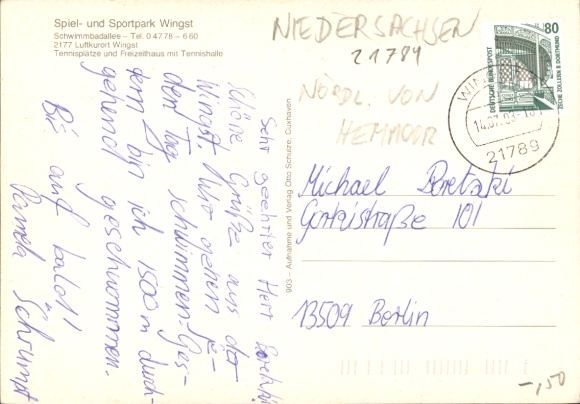 Spiel- und Sportpark Wingst
Schwimmbadallee – Tel. 0 47 78 – 6 60
2177 Luftkurort Wingst
Tennisplätze und Freizeithaus mit Tennishalle
NIEDERSACHSEN
21789
NÖRDL. VON
HEMMOOR
80
DEUTSCHE BUNDESPOST
ZECHE ZOLLERN II DORTMUND
14.07.93
21789
Sehr geehrter Herr
schöne Grüße aus der
Wingst. Wir gehen je-
den Tag schwimmen. Ges-
tern bin ich 1500 m durch-
gehend geschwommen.
Bis auf bald!
903 – Aufnahme und Verlag Otto Schulze, Cuxhaven
Michael
Gorkistraße 101
13509 Berlin
-,50